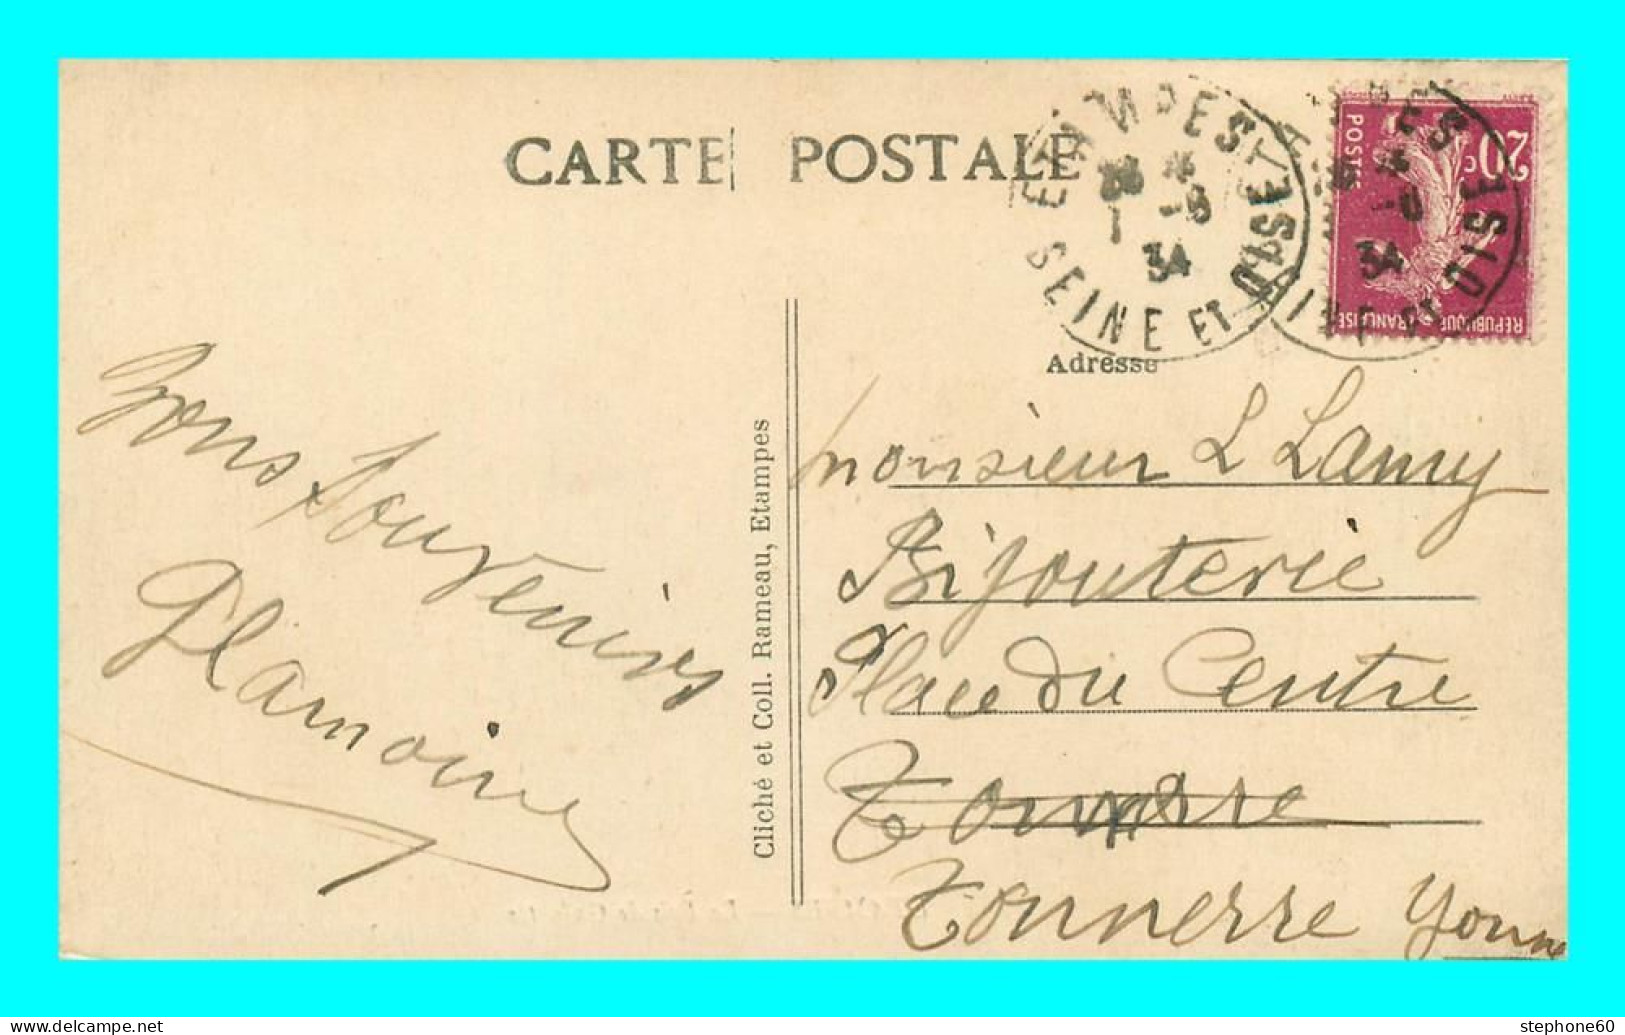 CARTE POSTALE
ETAMPES
1 - 8
34
SEINE ET OISE
20c
POSTES
REPUBLIQUE FRANÇAISE
Adresse
Bons Souvenirs
Glamoine
Cliché et Coll. Rameau, Etampes
Monsieur L Lamy
Bijouterie
Place du Centre
Tonnerre Yonne
www.delcampe.net
stephone60